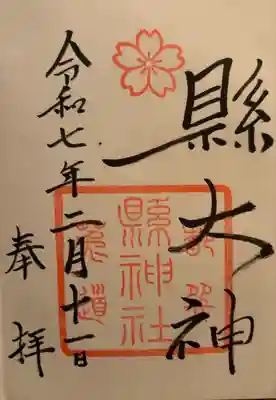 縣大神
令和七年二月十一日
奉拝
縣神社